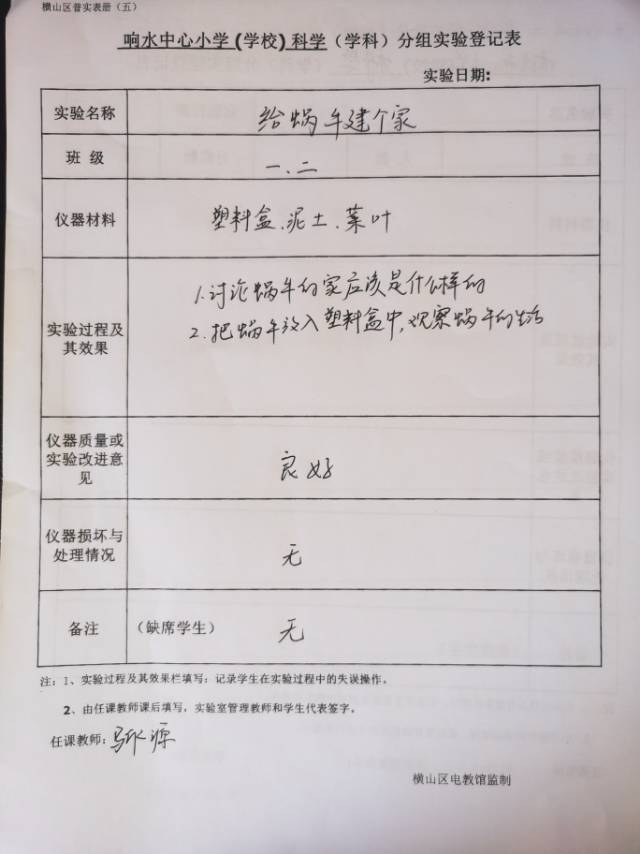 横山区普实表册（五）
响水中心小学(学校)科学（学科）分组实验登记表
实验日期:
实验名称 给蜗牛建个家
班 级 一、二
仪器材料 塑料盒、泥土、菜叶
1.讨论蜗牛的家应该是什么样的
实验过程及
2.把蜗牛放入塑料盒中,观察蜗牛的生活
其效果
仪器质量或
实验改进意
见
良好
仪器损坏与
处理情况
无
备注 (缺席学生) 无
注：1、实验过程及其效果栏填写：记录学生在实验过程中的失误操作。
2、由任课教师课后填写，实验室管理教师和学生代表签字。
任课教师:
横山区电教馆监制